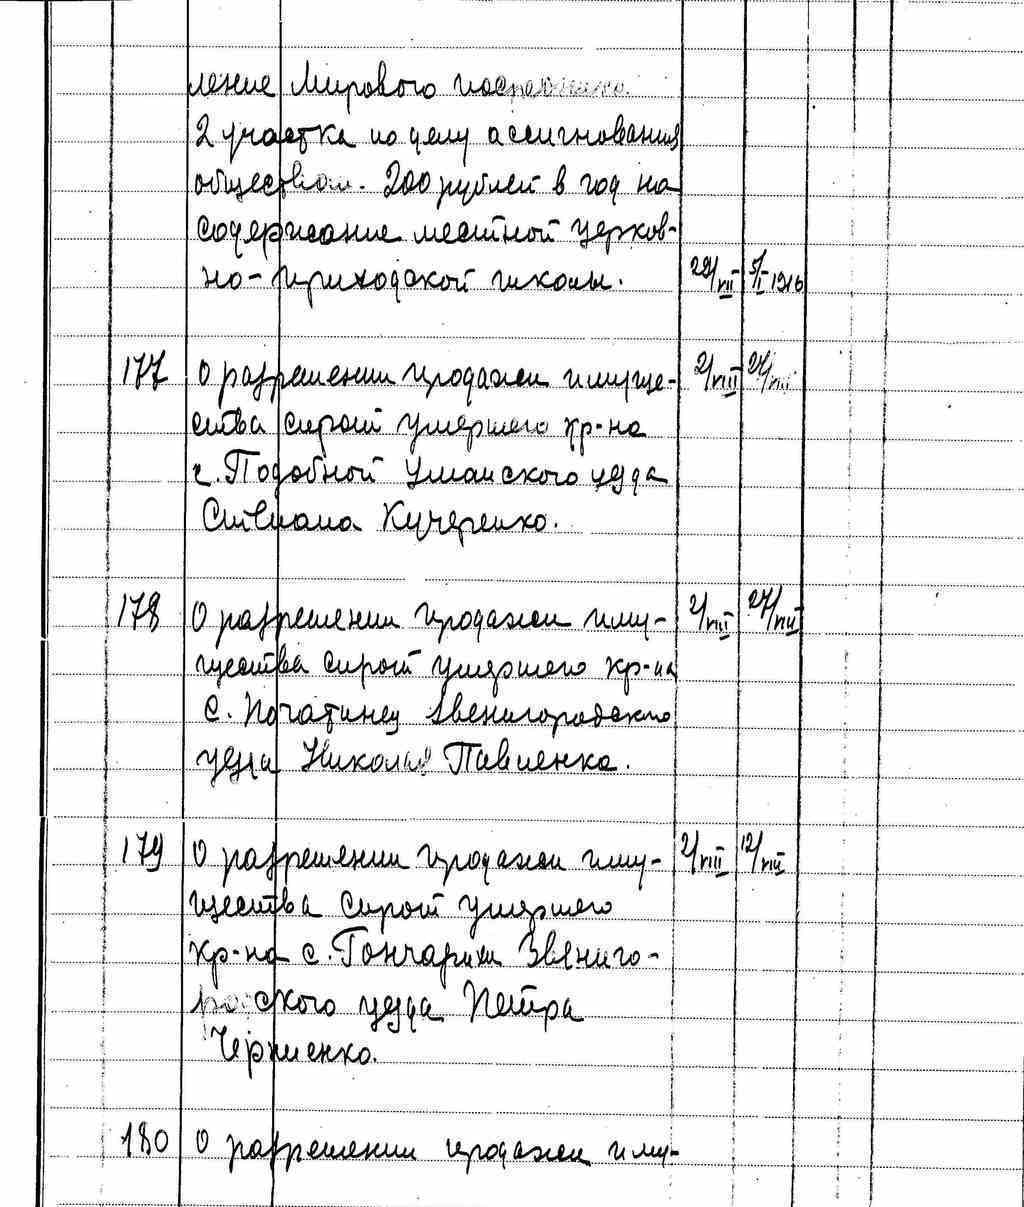 ление Мирового посредника
2 участка по делу ассигнования
обществом. 200 рублей в год на
содержание местной церков-
но-приходской школы. 29/VII 5/I 1916
177 О разрешении продажи имуще- 2/VIII 27/VIII
ства сирот умершего кр-на
с. Подобной Уманского уезда
Степана Кучеренко.
178 О разрешении продажи иму- 2/VIII 27/VIII
щества сирот умершего кр-на
с. Почапинец Звенигородского
уезда Николая Павленка.
179 О разрешении продажи иму- 2/VIII 12/VIII
щества сирот умершего
кр-на с. Гончарихи Звениго-
родского уезда Петра
Черниенко.
180 О разрешении продажи иму-